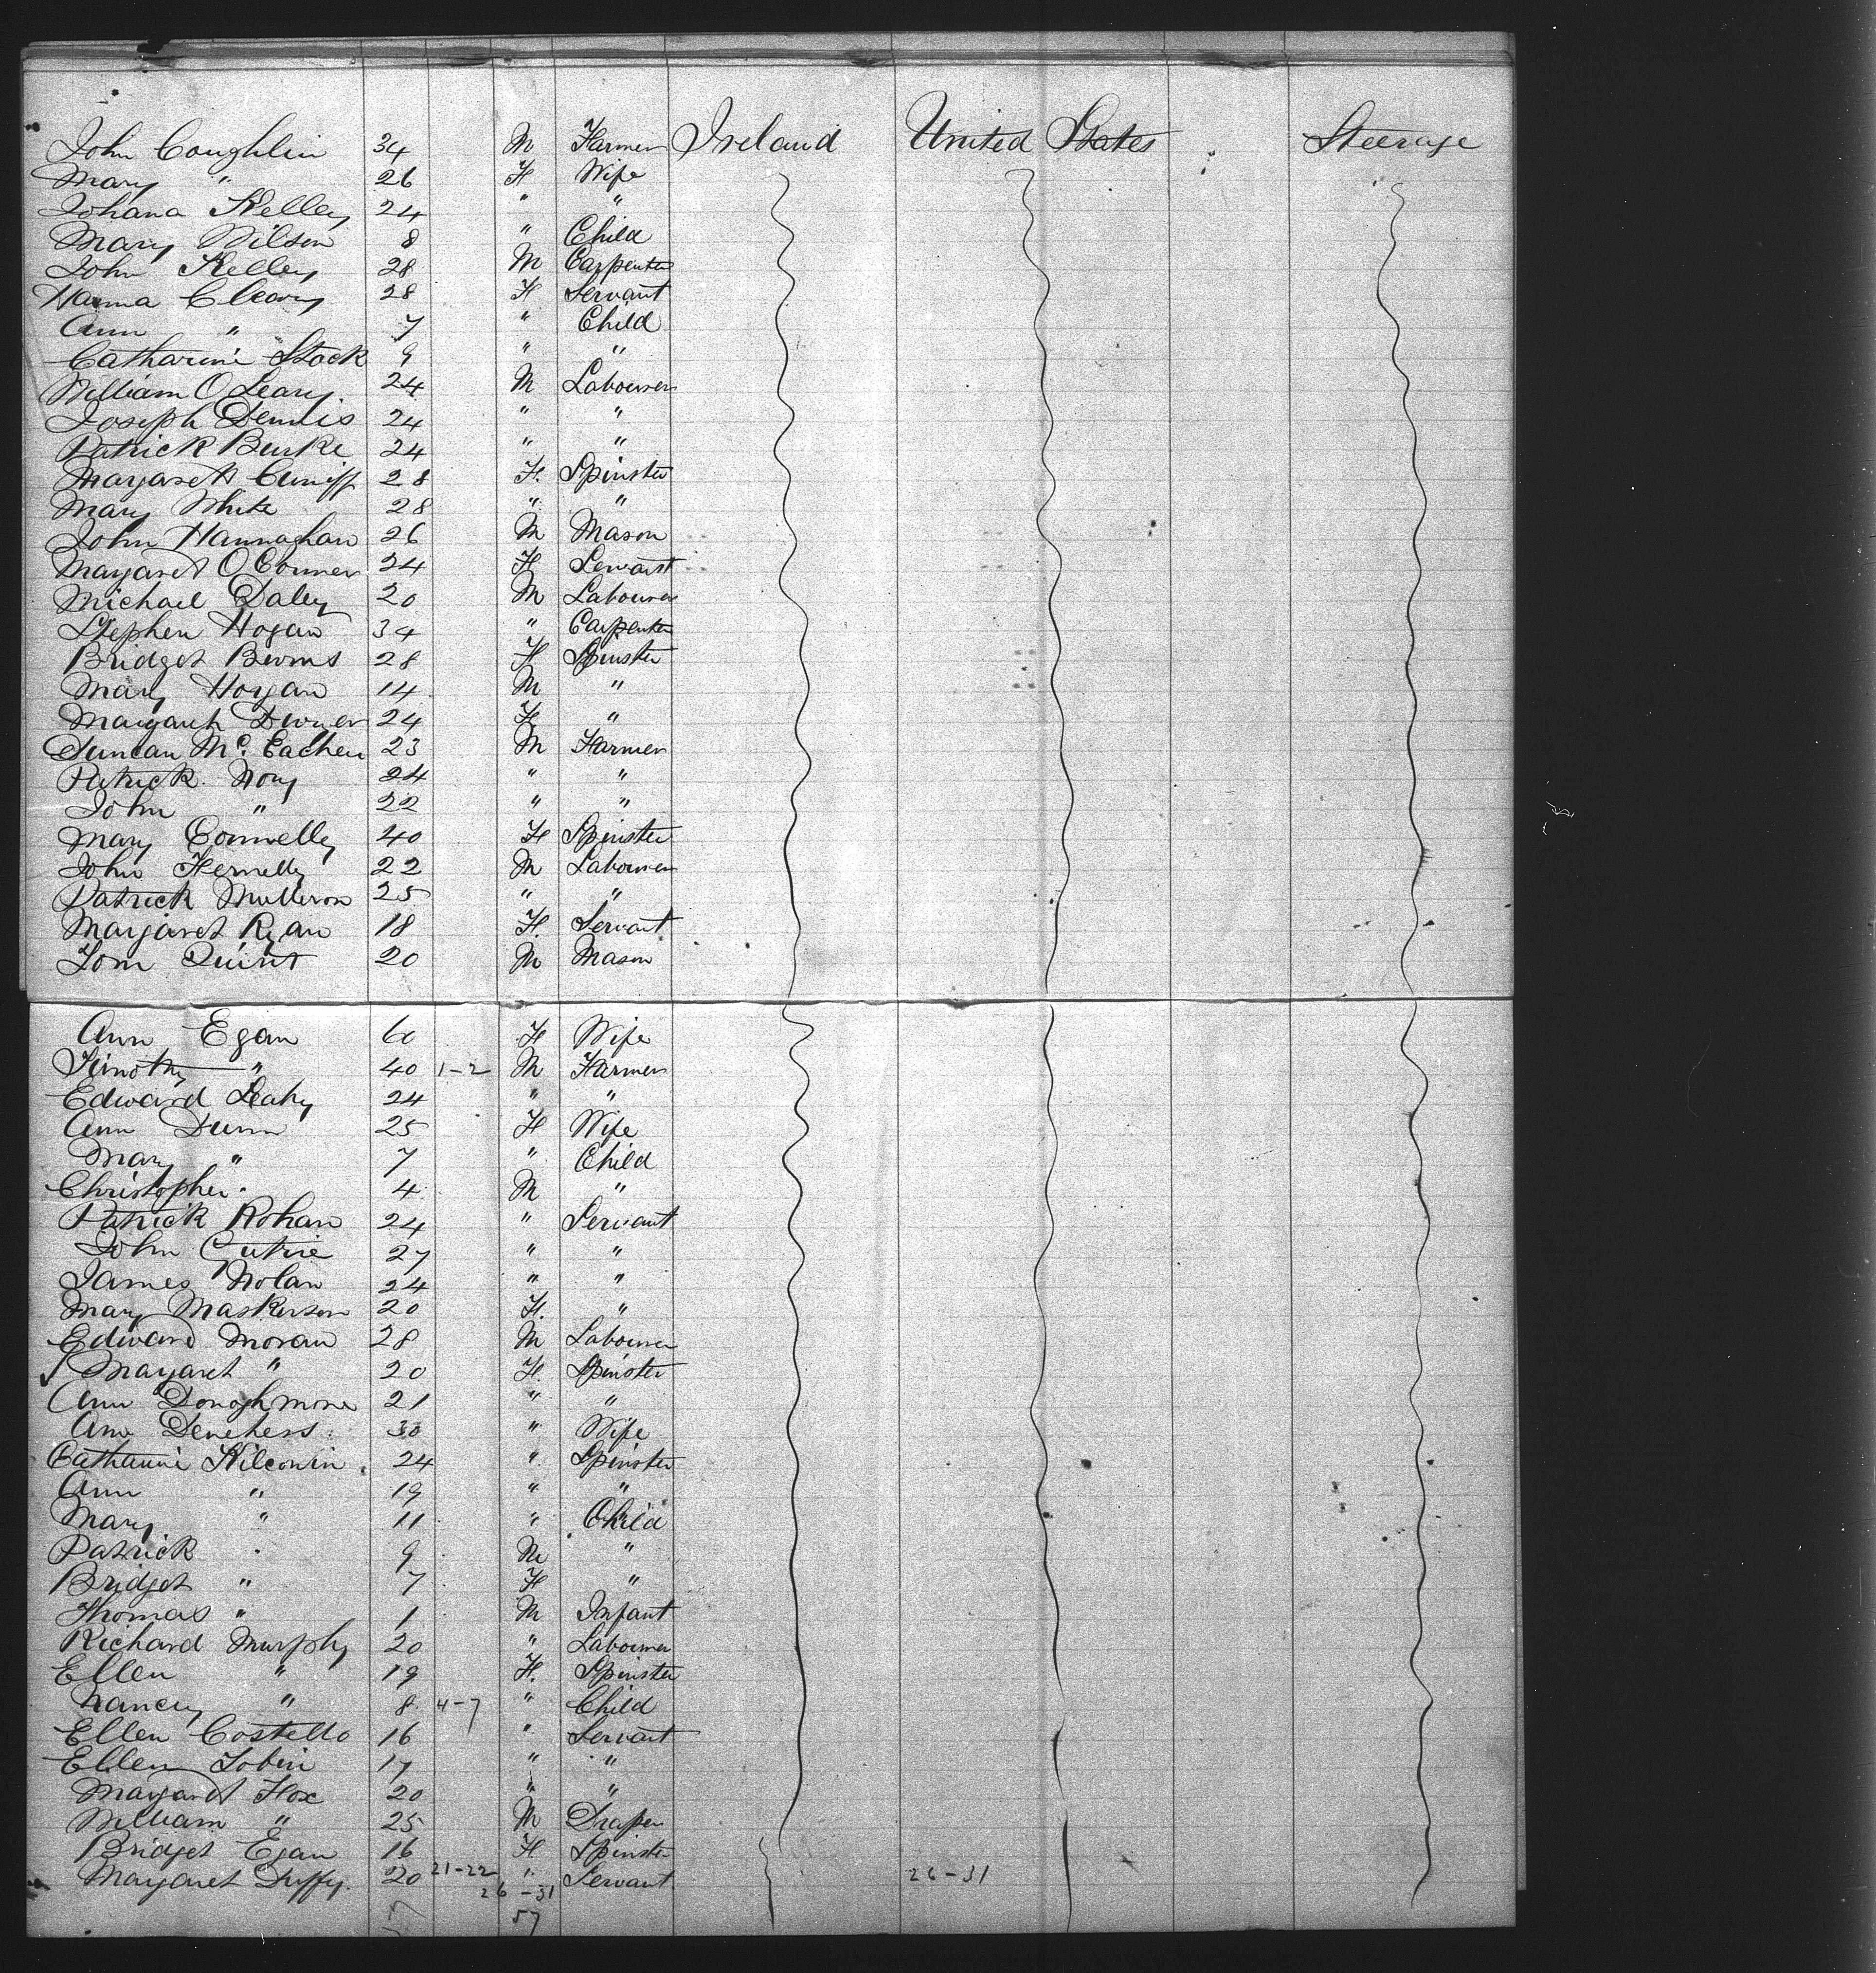 John Coughlin 34 M Farmer Ireland United States Steerage
Mary " 26 F Wife
Johana Kelley 24 " "
Mary Wilson 8 " Child
John Kelley 28 M Carpenter
Hanna Cleary 28 F Servant
Ann " 7 " Child
Catharine Stock 9 " "
William O Leary 24 M Labourer
Joseph Dennis 24 " "
Patrick Burke 24 " "
Margaret Cuniff 28 F. Spinster
Mary White 28 " "
John Hannaghan 26 M Mason
Margaret O Conner 24 F Servant
Michael Daley 20 M Labourer
Stephen Hogan 34 " Carpenter
Bridget Burns 28 F Spinster
Mary Hogan 14 M "
Margaret Dwyer 24 F. "
Duncan Mc. Eachen 23 M Farmer
Patrick Nony 24 " "
John " 22 " "
Mary Connelly 40 F Spinster
John Fennelly 22 M Labourer
Patrick Mulleron 25 " "
Margaret Ryan 18 F. Servant
Tom Quint 20 M Mason
Ann Egan 60 F Wife
Timothy " 40 1-2 M Farmer
Edward Leahy 24 " "
Ann Dunn 25 F Wife
Mary " 7 " Child
Christopher " 4 M "
Patrick Rohan 24 " Servant
John Gutrie 27 " "
James Nolan 24 " "
Mary Maskerson 20 F. "
Edward Moran 28 M Labourer
Margaret " 20 F. Spinster
Ann Donoghmore 21 " "
Ann Denehess 30 " Wife
Catharine Kilconin 24 " Spinster
Ann " 19 " "
Mary " 11 " Child
Patrick " 9 M "
Bridget " 7 F "
Thomas " 1 M Infant
Richard Murphy 20 " Labourer
Ellen " 19 F. Spinster
Nancy " 8 4-7 " Child
Ellen Costello 16 " Servant
Ellen Tobin 17 " "
Margaret Fox 20 " "
William " 25 M Draper
Bridget Egan 16 F Spinster
Margaret Duffy. 20 21-22 " Servant 26-31
26-31
57